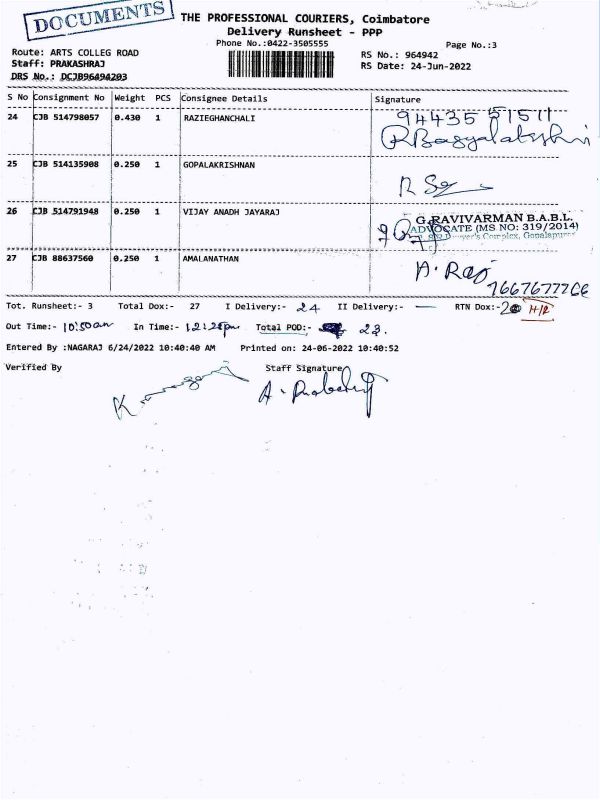 DOCUMENTS
THE PROFESSIONAL COURIERS, Coimbatore
Delivery Runsheet - PPP
Phone No.:0422-3505555
Page No.:3
Route: ARTS COLLEG ROAD
RS No.: 964942
Staff: PRAKASHRAJ
RS Date: 24-Jun-2022
DRS No.: DCJB96494203
S No Consignment No Weight PCS Consignee Details Signature
24 CJB 514798057 0.430 1 RAZIEGHANCHALI 94435 51511
25 CJB 514135908 0.250 1 GOPALAKRISHNAN
26 CJB 514791948 0.250 1 VIJAY ANADH JAYARAJ
G.RAVIVARMAN B.A.B.L.
ADVOCATE (MS NO: 319/2014)
Complex, Gopalapuram
27 CJB 88637560 0.250 1 AMALANATHAN A. Raj
Tot. Runsheet:- 3 Total Dox:- 27 I Delivery:- 24 II Delivery:- — RTN Dox:-
Out Time:- 10:50am In Time:- Total POD:- 23.
Entered By :NAGARAJ 6/24/2022 10:40:40 AM Printed on: 24-06-2022 10:40:52
Verified By Staff Signature